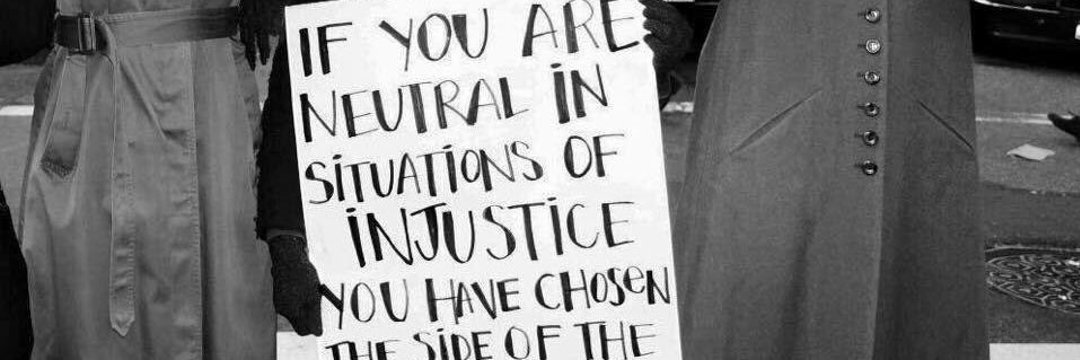 IF YOU ARE
NEUTRAL IN
SITUATIONS OF
INJUSTICE
YOU HAVE CHOSEN
THE SIDE OF THE